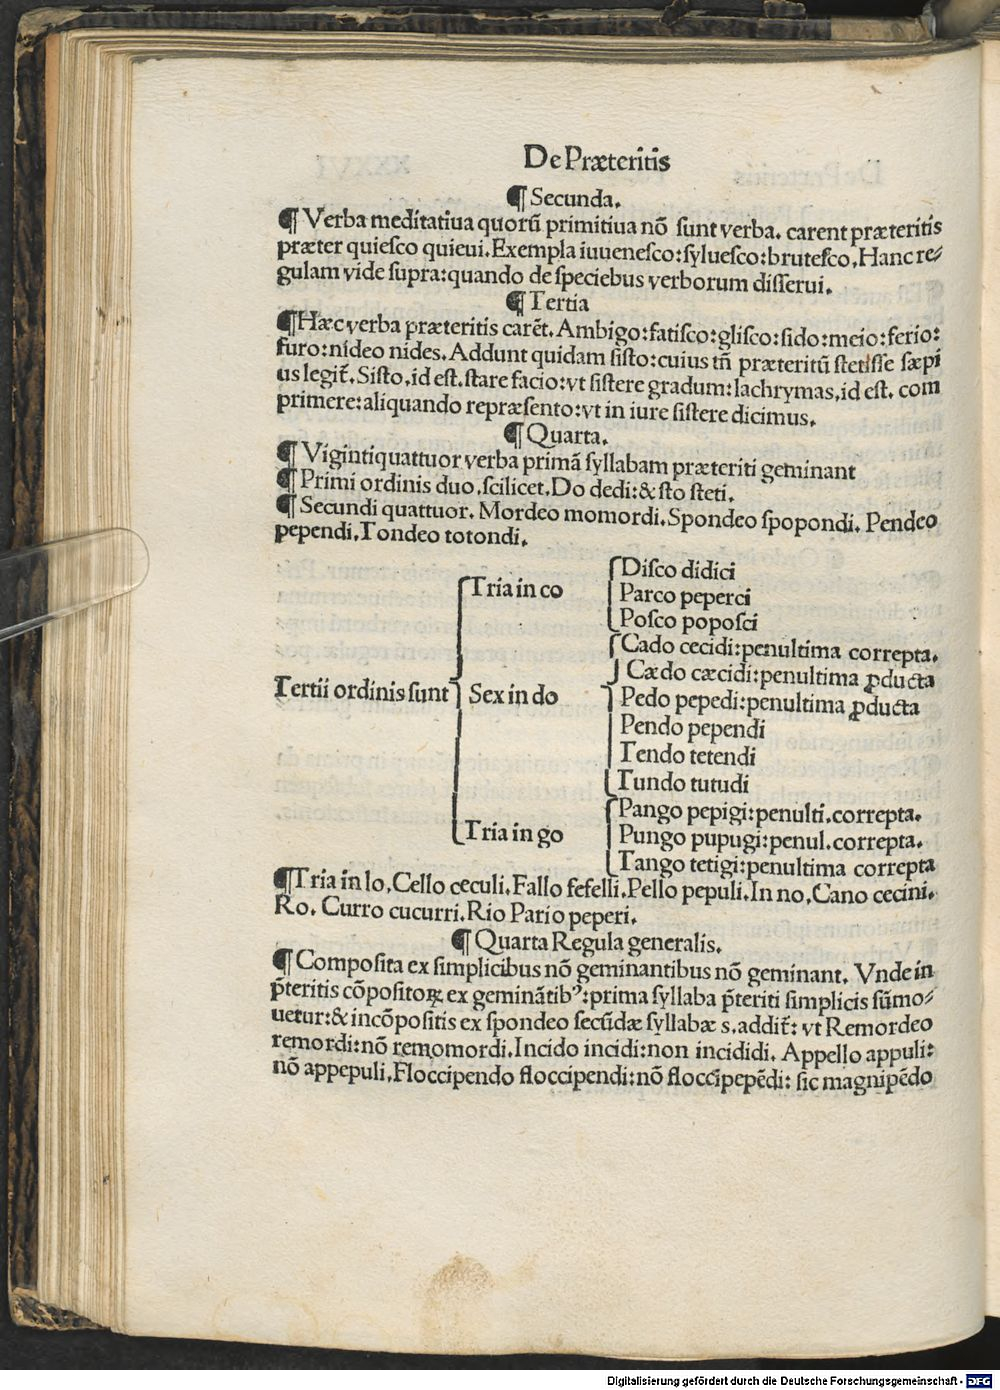 De Præteritis
¶ Secunda.
¶ Verba meditatiua quorū primitiua nō sunt verba. carent præteritis
præter quiesco quieui. Exempla iuuenesco: syluesco: brutesco. Hanc re⸗
gulam vide supra: quando de speciebus verborum disserui.
¶ Tertia
¶ Hæc verba præteritis carēt. Ambigo: fatisco: glisco: sido: meio: ferio:
furo: nideo nides. Addunt quidam sisto: cuius tñ præteritū stetisse sæpi
us legit̃. Sisto, id est. stare facio: vt sistere gradum: lachrymas, id est. com
primere: aliquando repræsento: vt in iure sistere dicimus.
¶ Quarta.
¶ Vigintiquattuor verba primā syllabam præteriti geminant
¶ Primi ordinis duo, scilicet. Do dedi: & sto steti.
¶ Secundi quattuor. Mordeo momordi. Spondeo spopondi. Pendeo
pependi. Tondeo totondi.
Tertii ordinis sunt
Tria in co
Disco didici
Parco peperci
Posco poposci
Sex in do
Cado cecidi: penultima correpta.
Cædo cæcidi: penultima ꝓducta
Pedo pepedi: penultima ꝓducta
Pendo pependi
Tendo tetendi
Tundo tutudi
Tria in go
Pango pepigi: penulti. correpta.
Pungo pupugi: penul. correpta.
Tango tetigi: penultima correpta
¶ Tria in lo. Cello ceculi. Fallo fefelli. Pello pepuli. In no. Cano cecini.
Ro. Curro cucurri. Rio Pario peperi.
¶ Quarta Regula generalis.
¶ Composita ex simplicibus nō geminantibus nō geminant. Vnde in
p̄teritis cōpositoꝝ ex geminātibꝰ: prima syllaba p̄teriti simplicis sūmo⸗
uetur: & incōpositis ex spondeo secūdæ syllabæ s, addit̃: vt Remordeo
remordi: nō remomordi. Incido incidi: non incididi. Appello appuli:
nō appepuli. Floccipendo floccipendi: nō floccipepēdi: sic magnipēdo
Digitalisierung gefördert durch die Deutsche Forschungsgemeinschaft - DFG